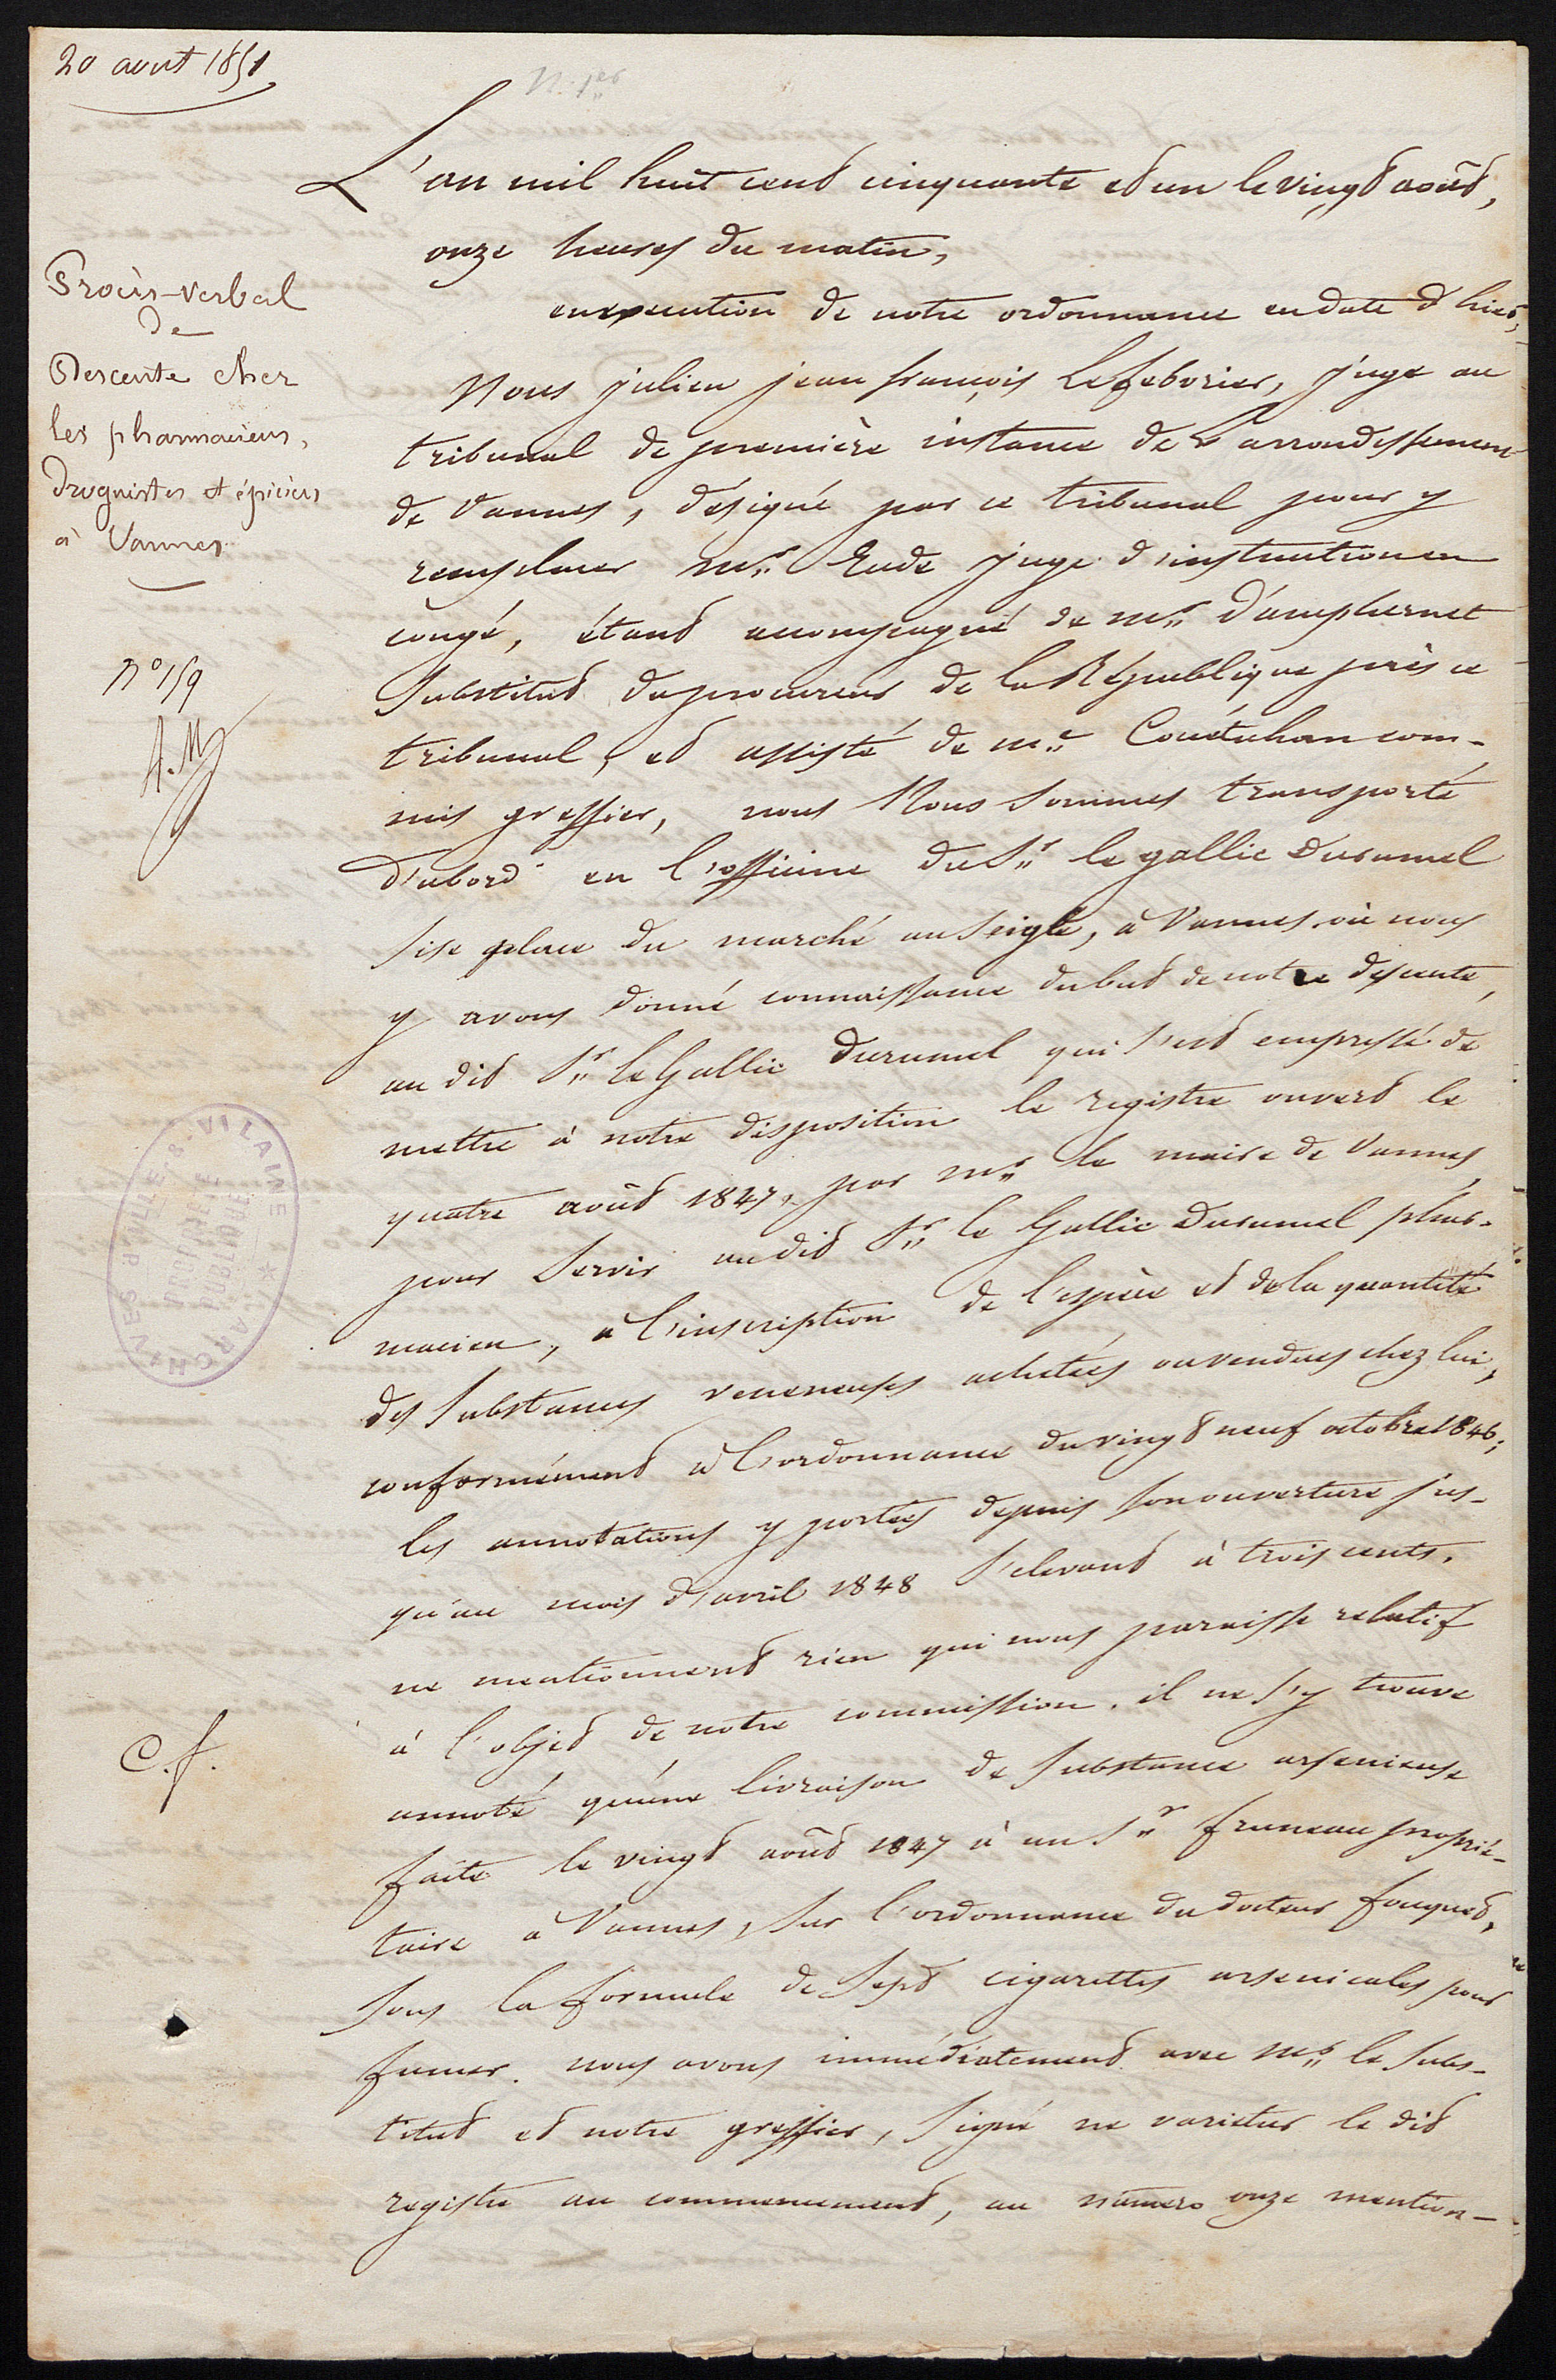 20 aout 1851
N. 1er
Procès-verbal
de
Descente chez
les pharmaciens,
Droguistes et épiciers
à Vannes
n° 159
A.M
C.f.
L'an mil huit cent cinquante et un le vingt août,
onze heures du matin,
en execution de notre ordonnance en date d'hier,
Nous julien jean françois Lefebvrier, juge au
tribunal de première instance de l'arrondissement
de Vannes, désigné par ce tribunal pour y
remplacer mr. Eude juge d'instruction en
congé, étant accompagné de mr. D'amphernet
Substitut du procureur de la République près ce
tribunal, et assisté de mr. Couëtuhan com-
mis greffier, nous Nous sommes transporté
D'abord en l'officine du Sr. le gallic Durumel
sise place du marché au Seigle, à Vannes où nous
y avons donné connaissance du but de notre descente,
au dit Sr. le Gallic Durumel qui s'est empressé de
mettre à notre disposition le registre ouvert le
quatre août 1847, par mr. le maire de Vannes,
pour Servir au dit Sr. le Gallic Durumel phar-
macien, à l'inscription de l'espèce et de la quantité
des Substances veneneuses achetées ou vendues chez lui,
conformément à l'ordonnance du vingt neuf octobre 1846;
les annotations y portées depuis son ouverture jus-
qu'au mois d'avril 1848 S'elevant à trois cents,
ne mentionnent rien qui nous paraisse relatif
à l'objet de notre commission. il ne s'y trouve
annoté qu'une livraison de Substance arsenieuse
faite le vingt août 1847 à un Sr. fruneau proprié-
taire à Vannes, Sur l'ordonnance du docteur fouquet,
sous la formule de Sept cigarettes arsenicales pour
fumer. nous avons immédiatement avec mr. le Subs-
titut et notre greffier, Signé ne varietur le dit
registre au commencement, au numero onze mention-
ARCHIVES D'ILLE & VILAINE
PROPRIÉTÉ
PUBLIQUE